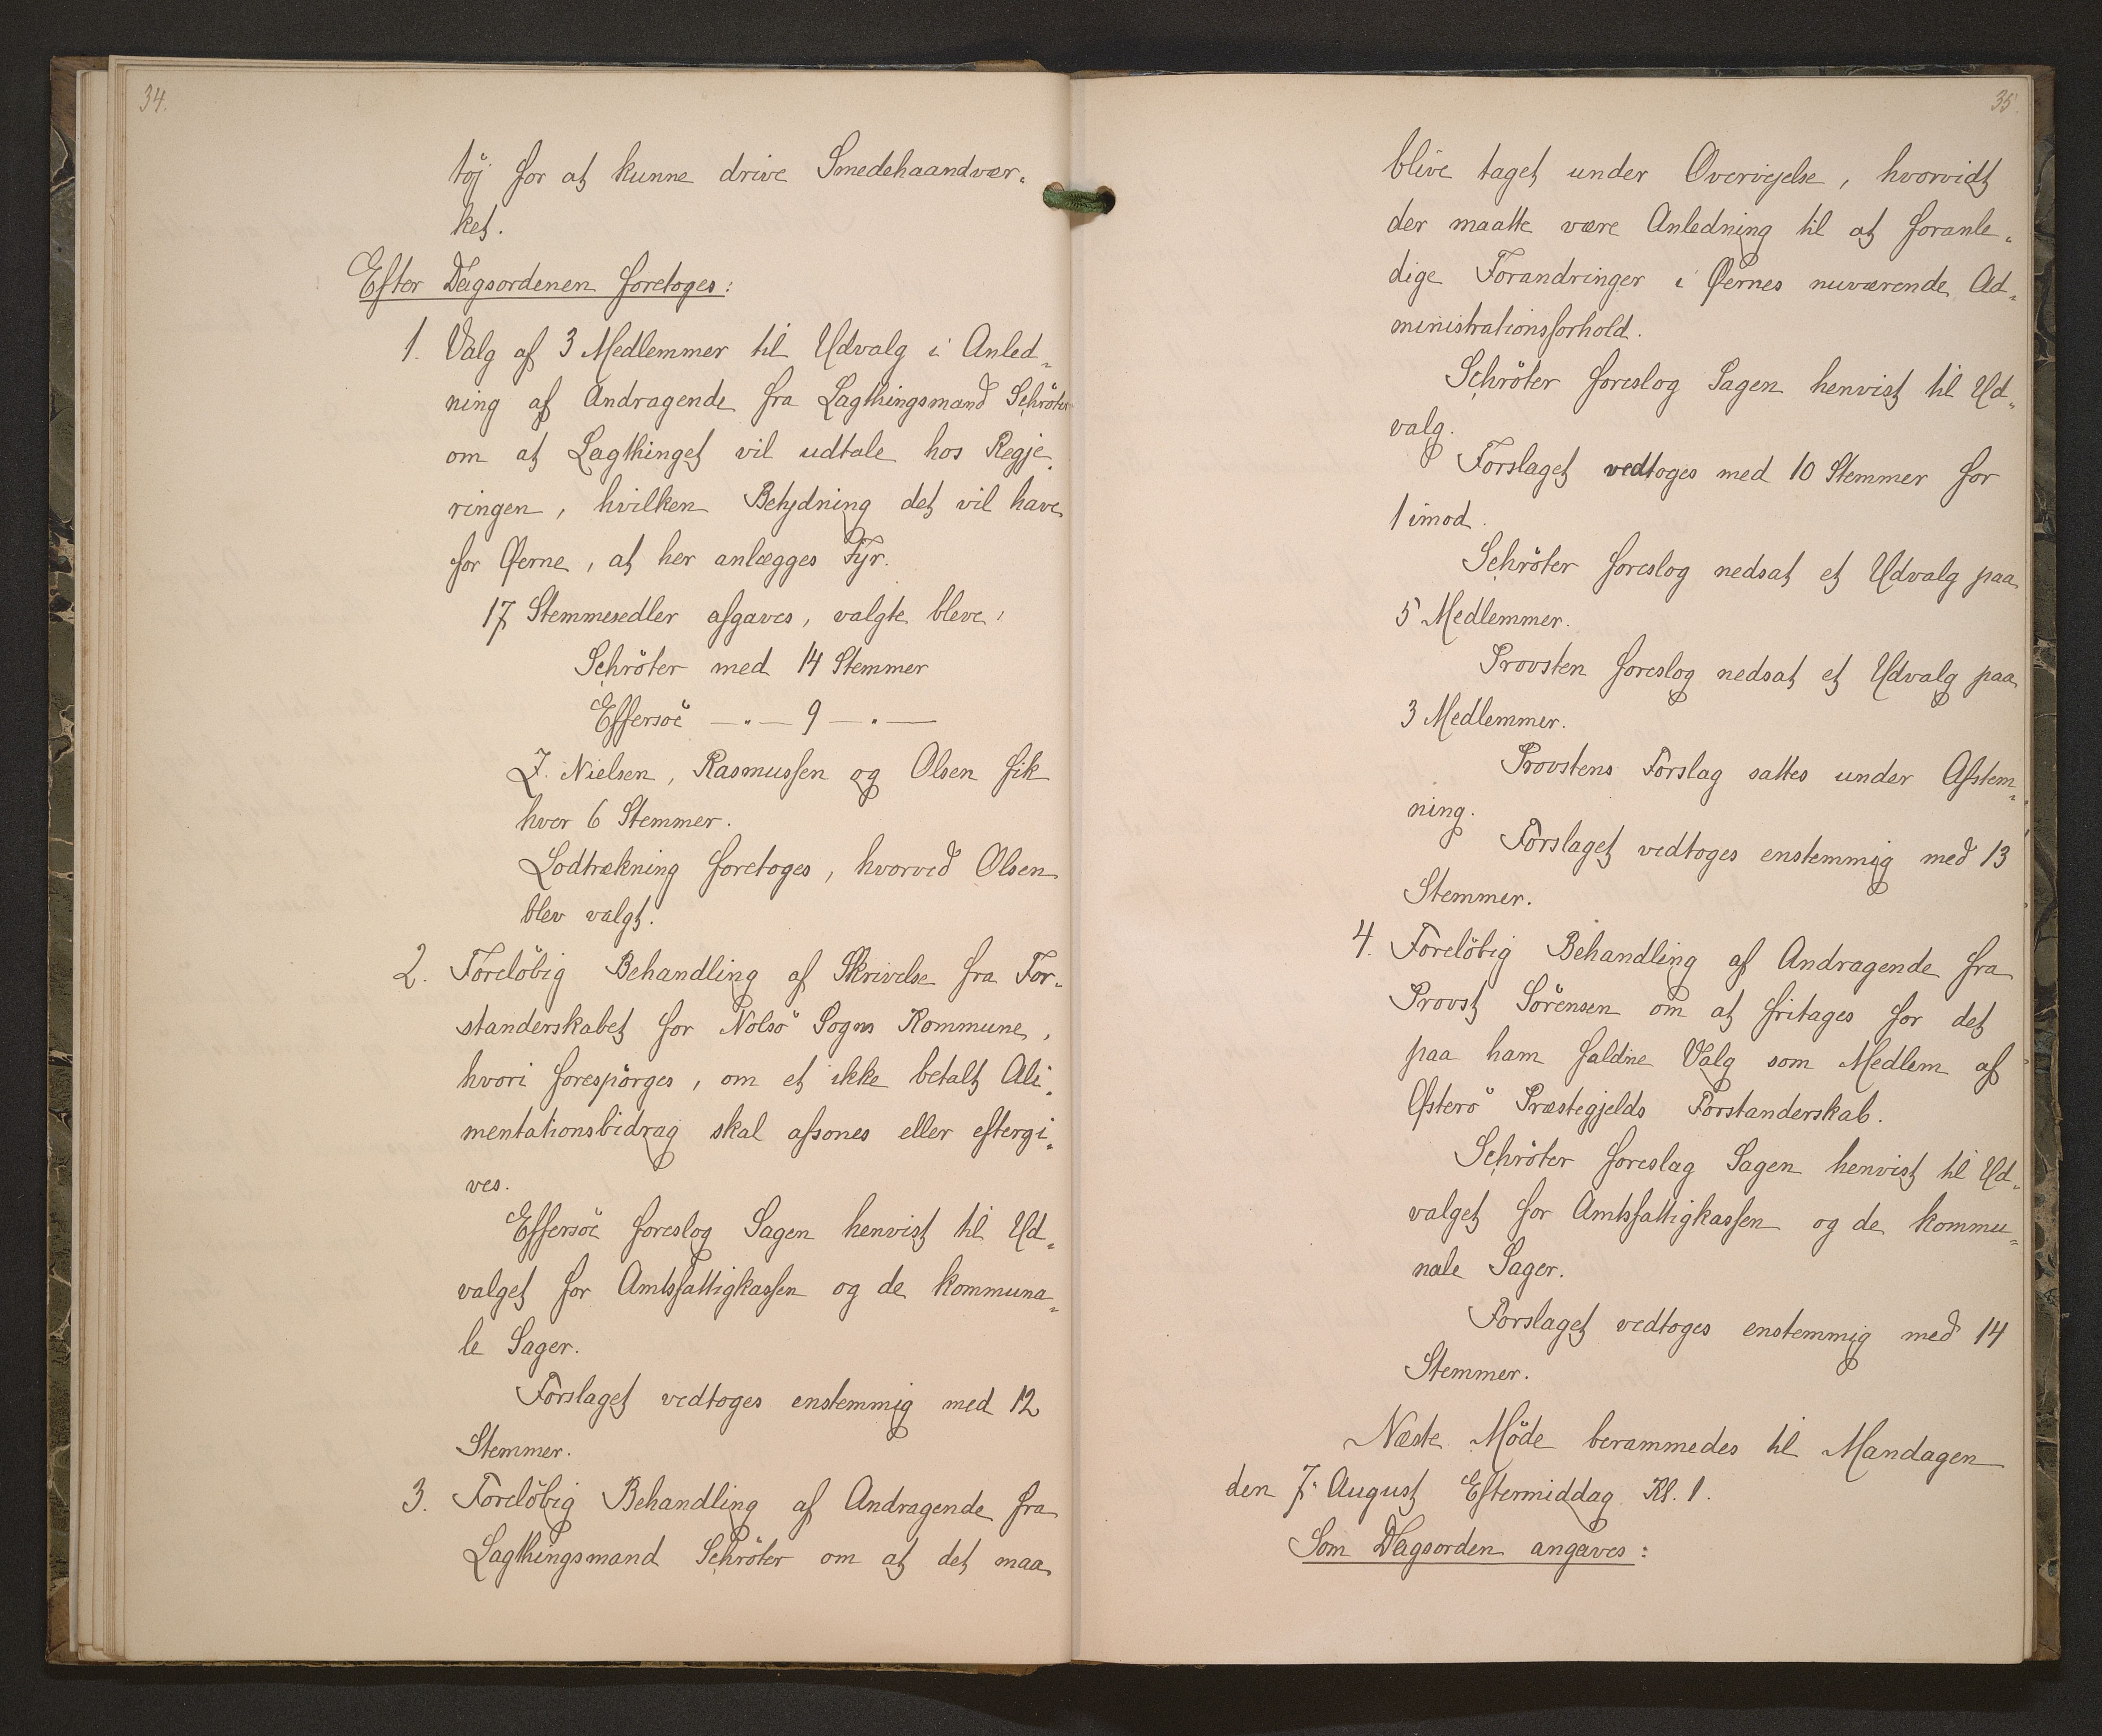 34.
töj for at kunne drive Smedehaandvær-
ket.
Efter Dagsordenen foretoges:
1. Valg af 3 Medlemmer til Udvalg i Anled-
ning af Andragende fra Lagthingsmand Schröter
om at Lagthinget vil udtale hos Regje-
ringen, hvilken Betydning det vil have
for Øerne, at her anlægges Fyr.
17 Stemmesedler afgaves, valgte bleve,
Schröter med 14 Stemmer
Effersöe —"— 9 —"—
J. Nielsen, Rasmussen og Olsen fik
hver 6 Stemmer.
Lodtrækning foretoges, hvorved Olsen
blev valgt.
2. Foreløbig Behandling af Skrivelse fra For-
standerskabet for Nolsö Sogns Kommune,
hvori forespörges, om et ikke betalt Ali-
mentationsbidrag skal afsones eller eftergi-
ves.
Effersöe foreslog Sagen henvist til Ud-
valget for Amtsfattigkassen og de kommuna-
le Sager.
Forslaget vedtoges enstemmig med 12
Stemmer.
3. Forelöbig Behandling af Andragende fra
Lagthingsmand Schröter om at det maa
35.
blive taget under Overvejelse, hvorvidt
der maatte være Anledning til at foranle-
dige Forandringer i Øernes nuværende Ad-
ministrationsforhold.
Schröter foreslog Sagen henvist til Ud-
valg.
Forslaget vedtoges med 10 Stemmer for
1 imod.
Schröter foreslog nedsat et Udvalg paa
5 Medlemmer.
Provsten foreslog nedsat et Udvalg paa
3 Medlemmer.
Provstens Forslag sattes under Afstem-
ning.
Forslaget vedtoges enstemmig med 13
Stemmer.
4. Forelöbig Behandling af Andragende fra
Provst Sörensen om at fritages for det
paa ham faldne Valg som Medlem af
Østerö Præstegjelds Forstanderskab.
Schröter foreslag Sagen henvist til Ud-
valget for Amtsfattigkassen og de kommu-
nale Sager.
Forslaget vedtoges enstemmig med 14
Stemmer.
Næste Möde berammedes til Mandagen
den 7. August Eftermiddag Kl. 1.
Som Dagsorden angaves: